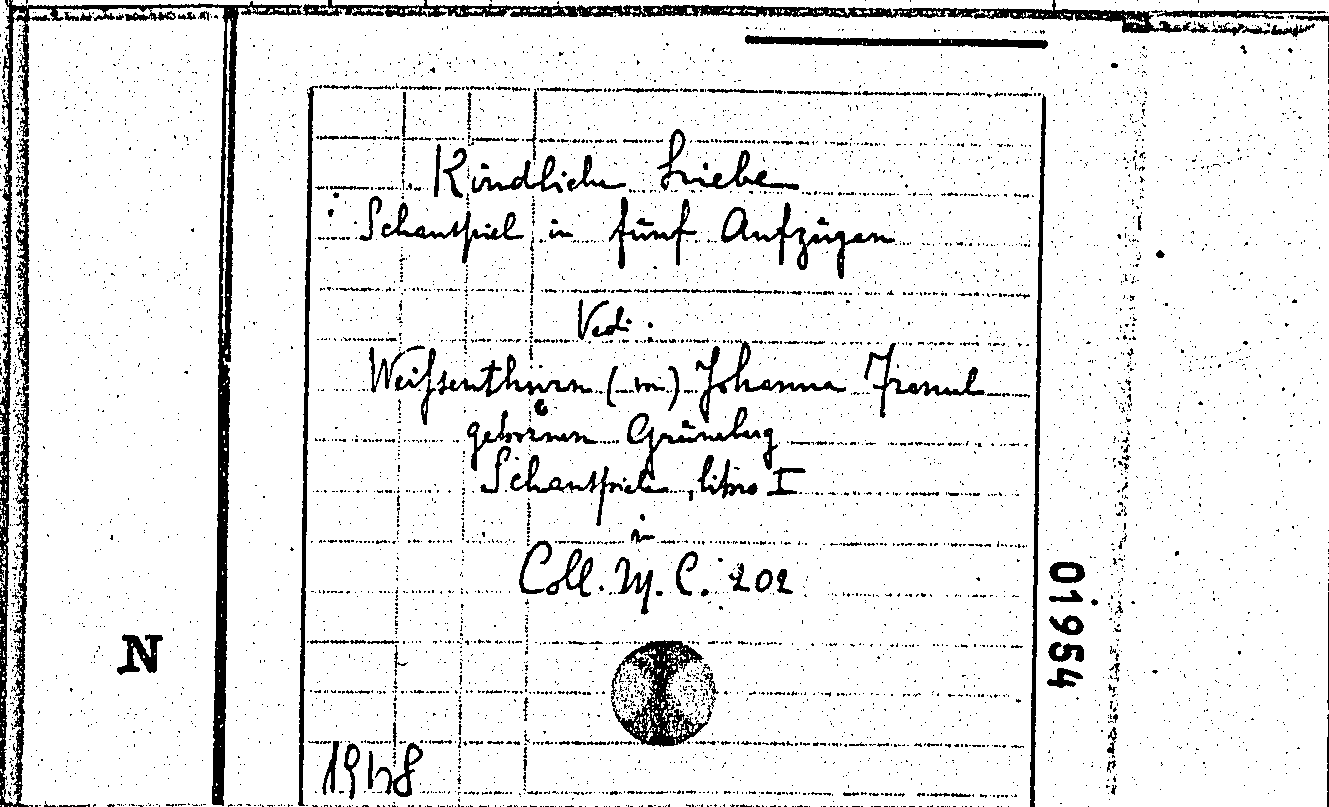 Kindliche Liebe
: Schauspiel in fünf Aufzügen
Vedi:
Weissenthurn (m) Johanna Franul
gebornen Grünberg
Schauspiele, libro I
in
Coll. M. C. 202
N
01954